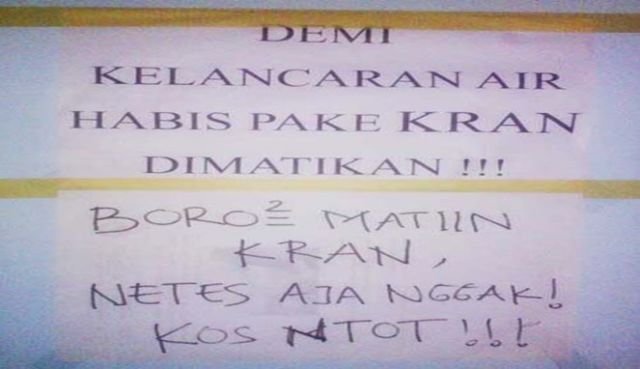 DEMI
KELANCARAN AIR
HABIS PAKE KRAN
DIMATIKAN !!!
BORO² MATIIN
KRAN,
NETES AJA NGGAK!
KOS NTOT!!!